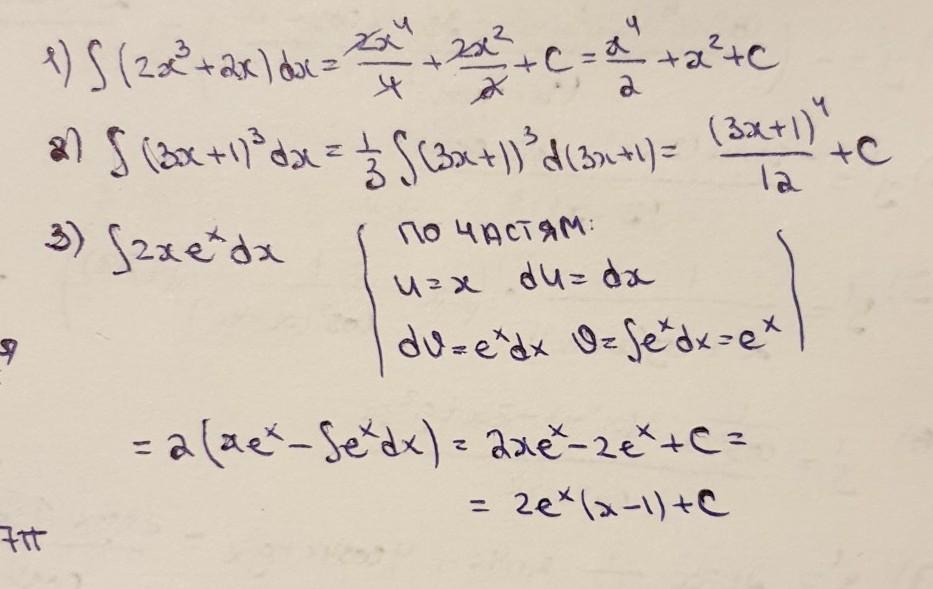 1) ∫(2x³+2x)dx = 2x⁴/4 + 2x²/2 + C = x⁴/2 + x² + C
2) ∫(3x+1)³dx = 1/3 ∫(3x+1))³d(3x+1) = (3x+1)⁴/12 + C
3) ∫2xeˣdx
ПО ЧАСТЯМ:
u=x du=dx
dv=eˣdx v=∫eˣdx=eˣ
= 2(xeˣ-∫eˣdx) = 2xeˣ-2eˣ+C =
= 2eˣ(x-1)+C
7π